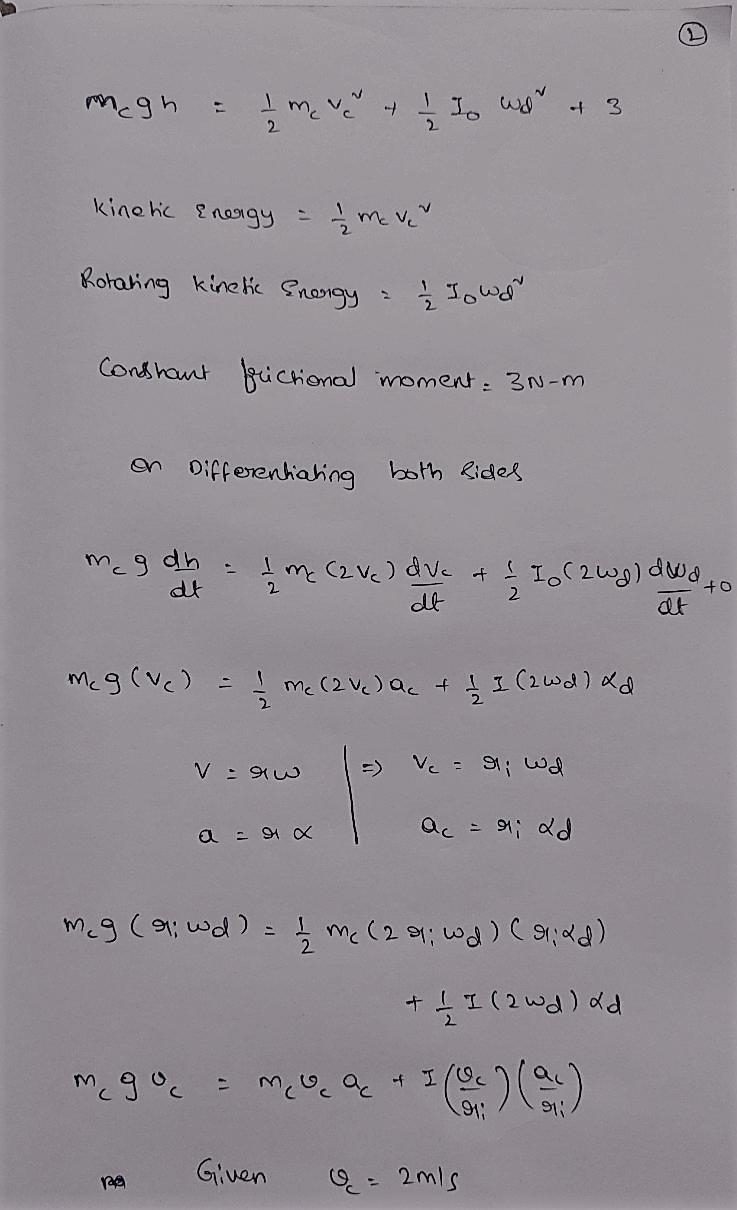 ②
mcgh = 1/2 mc vc² + 1/2 Io ωd² + 3
Kinetic Energy = 1/2 mc vc²
Rotating kinetic Energy = 1/2 Io ωd²
Constant frictional moment = 3N-m
on Differentiating both sides
mc g dh/dt = 1/2 mc (2vc) dvc/dt + 1/2 Io (2ωd) dωd/dt + 0
mc g (vc) = 1/2 mc (2vc) ac + 1/2 I (2ωd) αd
v = rω | ⇒ vc = ri ωd
a = r α | ac = ri αd
mc g (ri ωd) = 1/2 mc (2 ri ωd) (ri αd)
+ 1/2 I (2ωd) αd
mc g vc = mc vc ac + I (vc/ri) (ac/ri)
Given vc = 2m/s